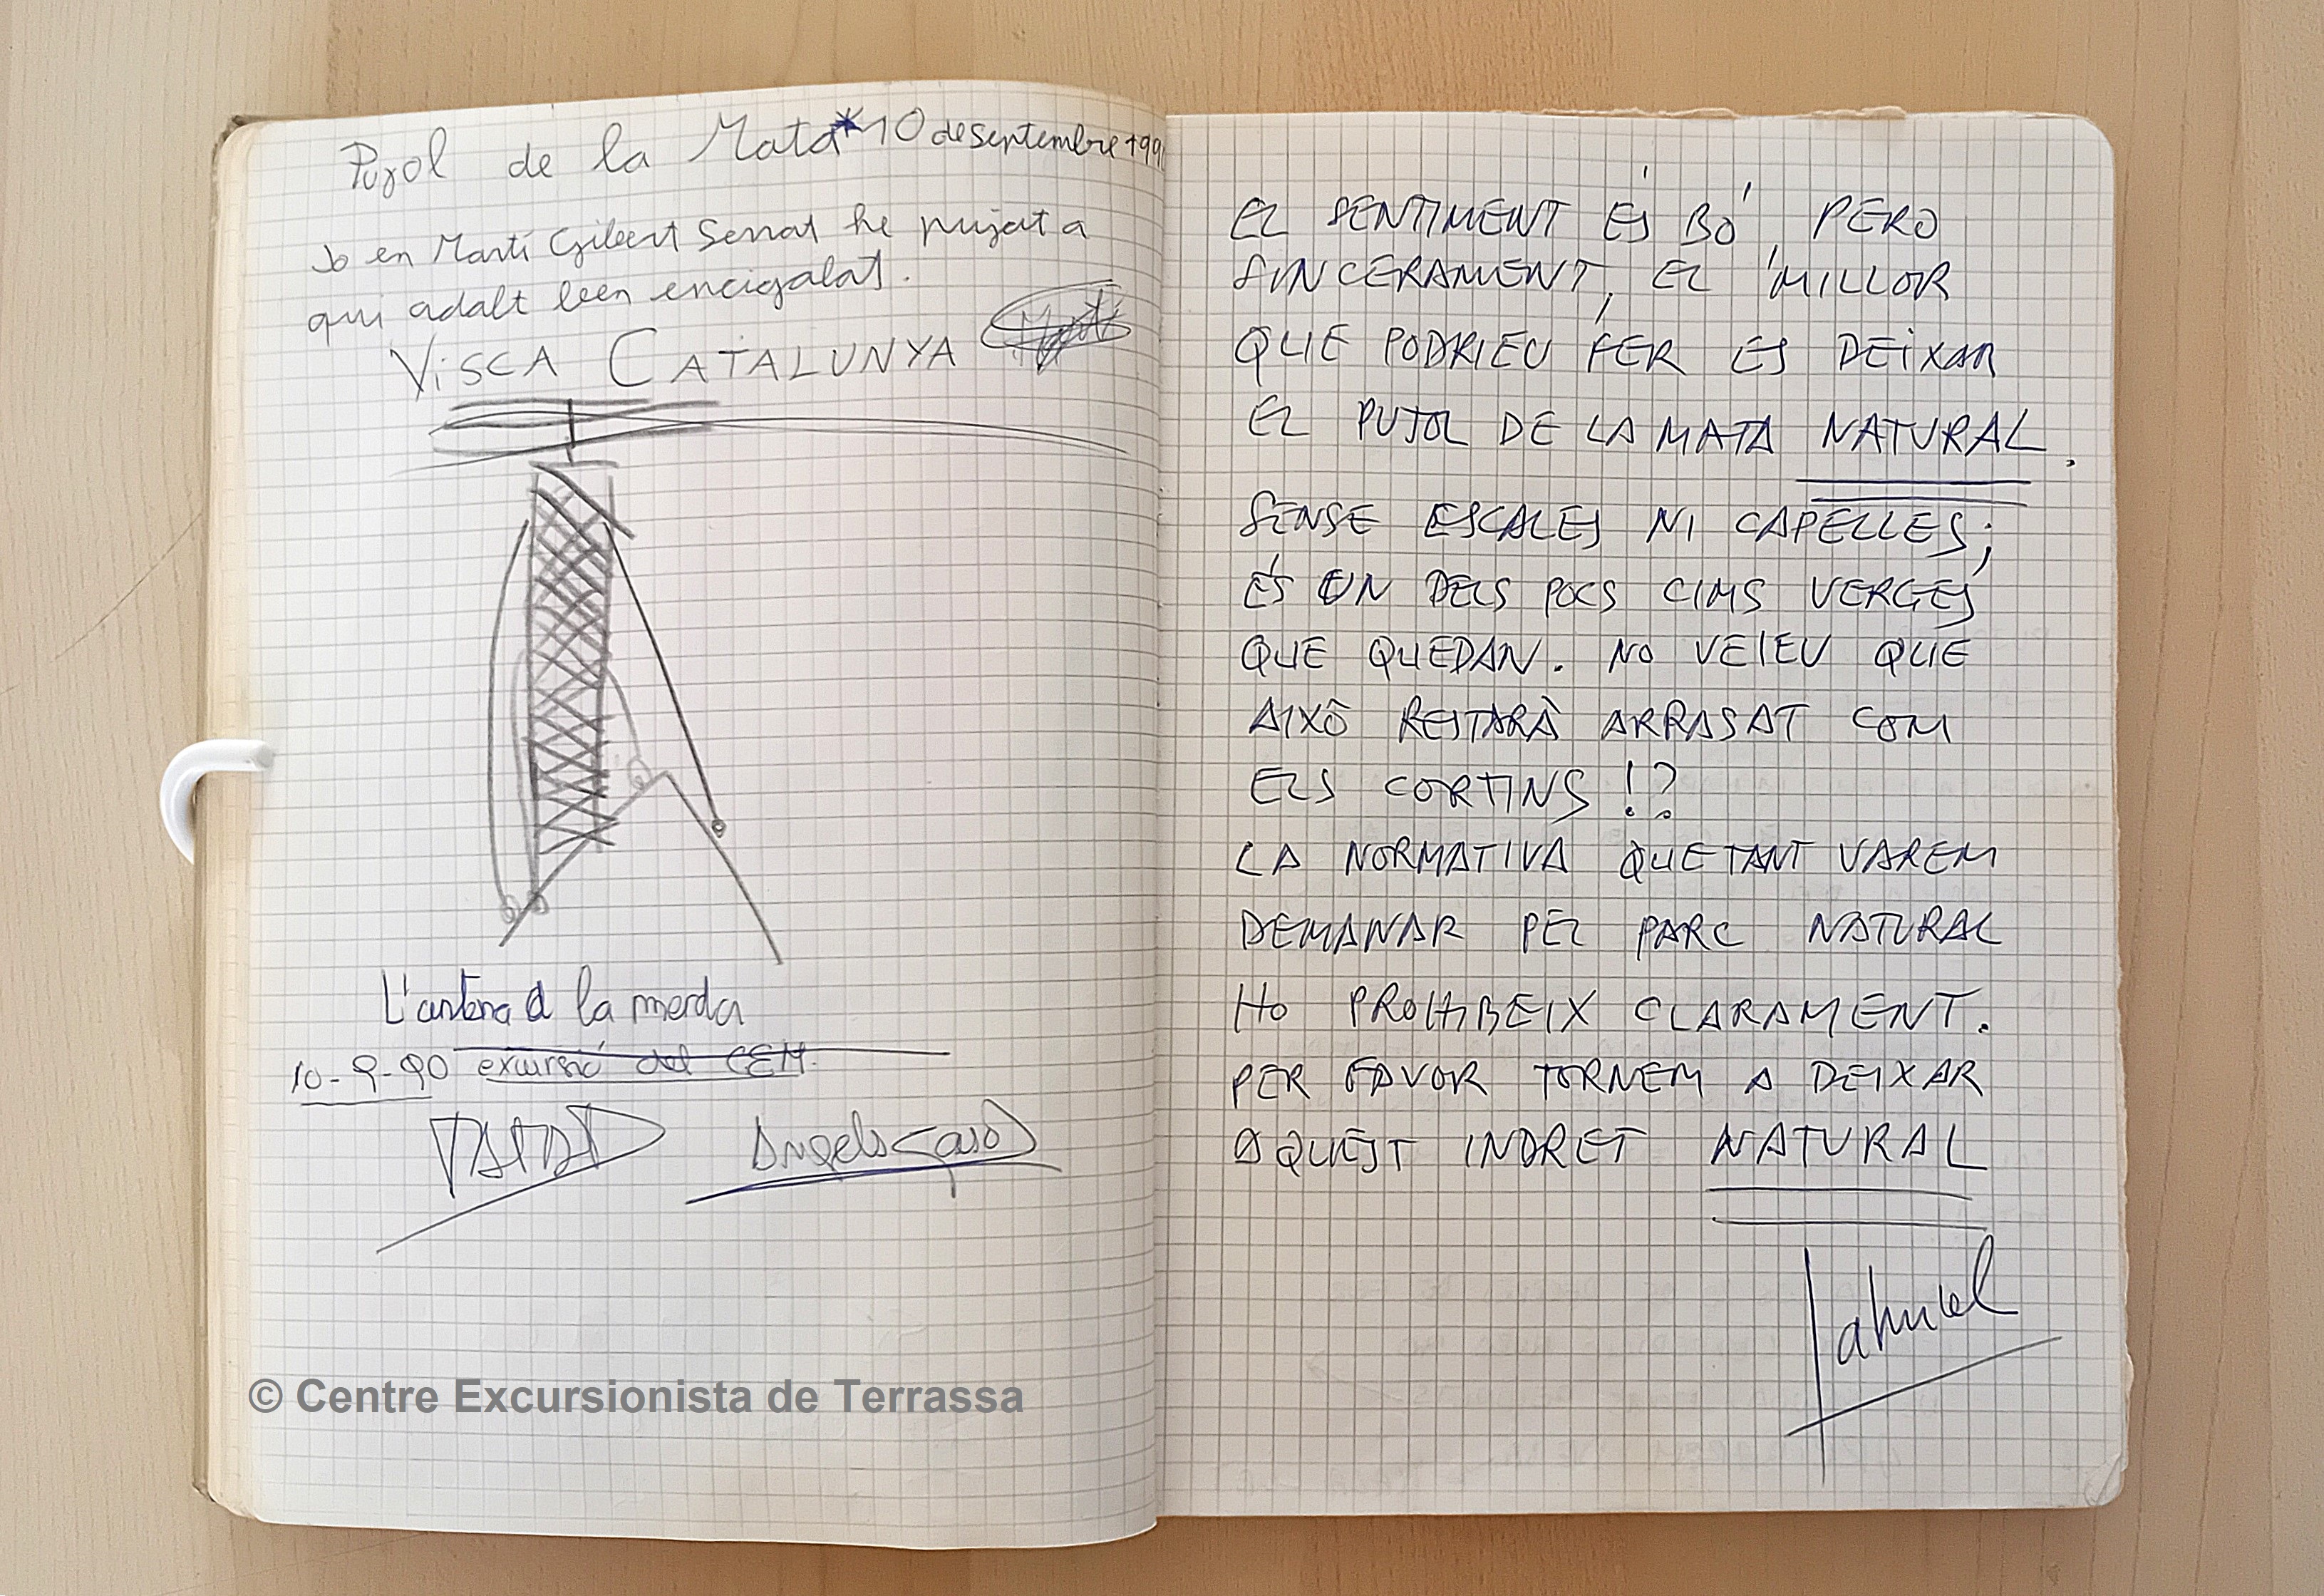 Pujol de la Mata * 10 de septembre 199
Jo en Martí Gibert Serrat he pujat a
qui adalt been encigalat.
VISCA CATALUNYA
L'antena a la merda
10-9-90 excursió del CEM.
Angels Caso
EL SENTIMENT ÉS BÓ, PERO
SINCERAMENT, EL MILLOR
QUE PODRIEU FER ES DEIXAR
EL PUJOL DE LA MATA NATURAL.
SENSE ESCALES NI CAPELLES;
ÉS UN DELS POCS CIMS VERGES
QUE QUEDAN. NO VEIEU QUE
AIXÒ RESTARÀ ARRASAT COM
ELS CORTINS !?
LA NORMATIVA QUE TANT VAREM
DEMANAR PEL PARC NATURAL
HO PROHIBEIX CLARAMENT.
PER FAVOR TORNEM A DEIXAR
AQUEST INDRET NATURAL
© Centre Excursionista de Terrassa